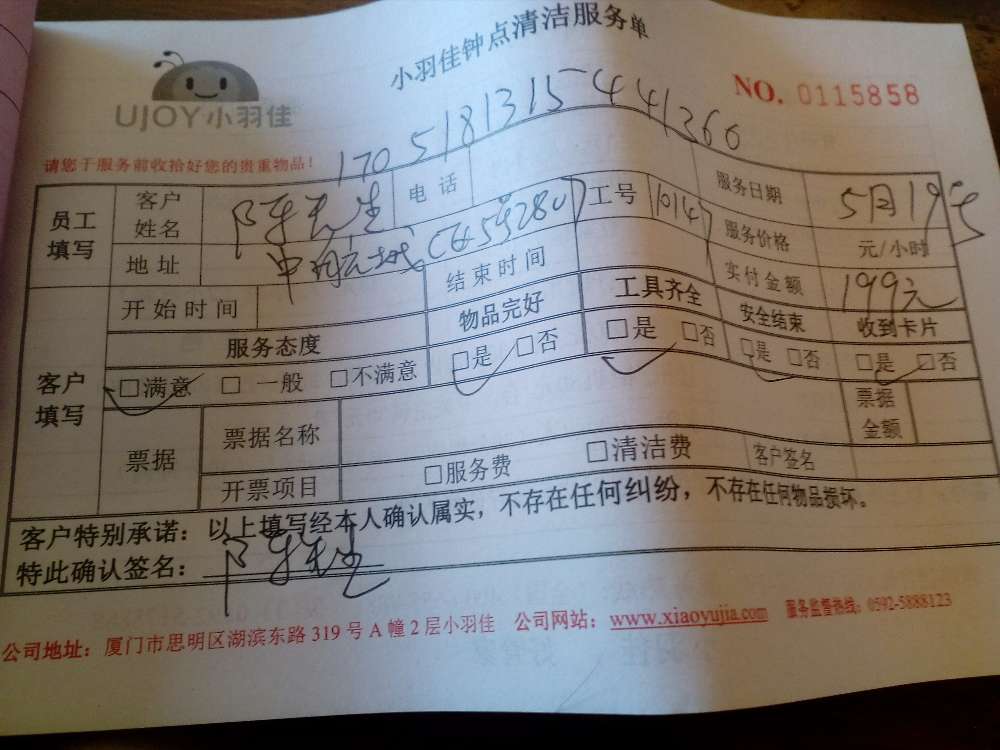 小羽佳钟点清洁服务单
UJOY小羽佳
NO. 0115858
请您于服务前收拾好您的贵重物品！
170518131544 1366
员工填写 客户姓名 陈先生 电话 工号 10147 服务日期 5月19号
地址 服务价格 元/小时
开始时间 结束时间 实付金额 199元
客户填写 服务态度 物品完好 工具齐全 安全结束 收到卡片
□满意 □一般 □不满意 □是 □否 □是 □否 □是 □否 □是 □否
票据 票据名称 票据金额
开票项目 □服务费 □清洁费 客户签名
客户特别承诺：以上填写经本人确认属实，不存在任何纠纷，不存在任何物品损坏。
特此确认签名：陈先生
公司地址：厦门市思明区湖滨东路 319 号 A 幢 2 层小羽佳 公司网站：www.xiaoyujia.com 服务监督热线：0592-5888123